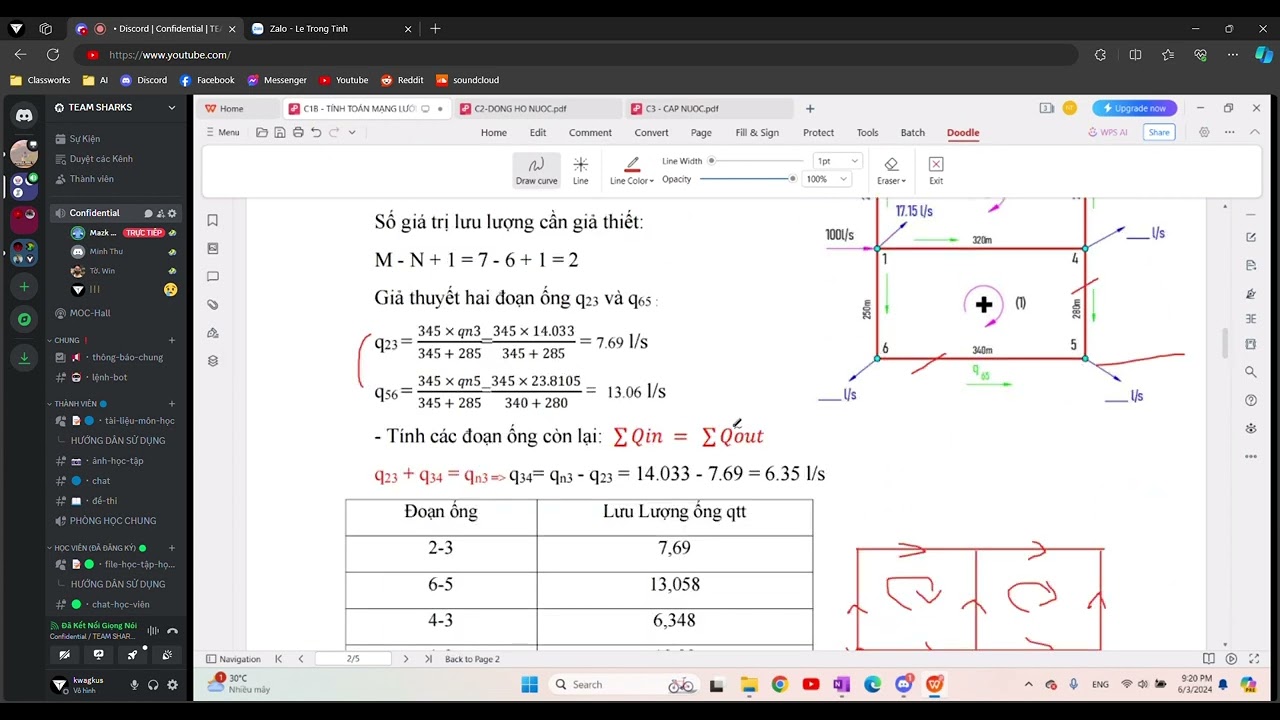 • Discord | Confidential | TEA
Zalo - Le Trong Tinh
https://www.youtube.com/
Classworks
AI
Discord
Facebook
Messenger
Youtube
Reddit
soundcloud
TEAM SHARKS
Sự Kiện
Duyệt các Kênh
Thành viên
Confidential
Mazk ...
TRỰC TIẾP
Minh Thu
Tờ. Win
MOC-Hall
CHUNG
thông-báo-chung
lệnh-bot
THÀNH VIÊN
tài-liệu-môn-học
HƯỚNG DẪN SỬ DỤNG
ảnh-học-tập
chat
đề-thi
PHÒNG HỌC CHUNG
HỌC VIÊN (ĐÃ ĐĂNG KÝ)
file-học-tập-họ...
HƯỚNG DẪN SỬ DỤNG
chat-học-viên
Đã Kết Nối Giọng Nói
Confidential / TEAM SHAR...
kwagkus
Vô hình
Home
C1B - TÍNH TOÁN MẠNG LƯỚ
C2-DONG HO NUOC.pdf
C3 - CAP NUOC.pdf
Upgrade now
Menu
Home
Edit
Comment
Convert
Page
Fill & Sign
Protect
Tools
Batch
Doodle
WPS AI
Share
Draw curve
Line
Line Color
Line Width
1pt
Opacity
100%
Eraser
Exit
Số giá trị lưu lượng cần giả thiết:
M - N + 1 = 7 - 6 + 1 = 2
Giả thuyết hai đoạn ống q23 và q65 :
q23 = 345 × qn3 / 345 + 285 = 345 × 14.033 / 345 + 285 = 7.69 l/s
q56 = 345 × qn5 / 345 + 285 = 345 × 23.8105 / 340 + 280 = 13.06 l/s
- Tính các đoạn ống còn lại: ∑Qin = ∑Qout
q23 + q34 = qn3 => q34= qn3 - q23 = 14.033 - 7.69 = 6.35 l/s
Đoạn ống
Lưu Lượng ống qtt
2-3
7,69
6-5
13,058
4-3
6,348
17.15 l/s
100l/s
320m
___ l/s
1
4
250m
(1)
280m
6
5
340m
q 65
___ l/s
___ l/s
Navigation
2/5
Back to Page 2
30°C
Nhiều mây
Search
ENG
9:20 PM
6/3/2024